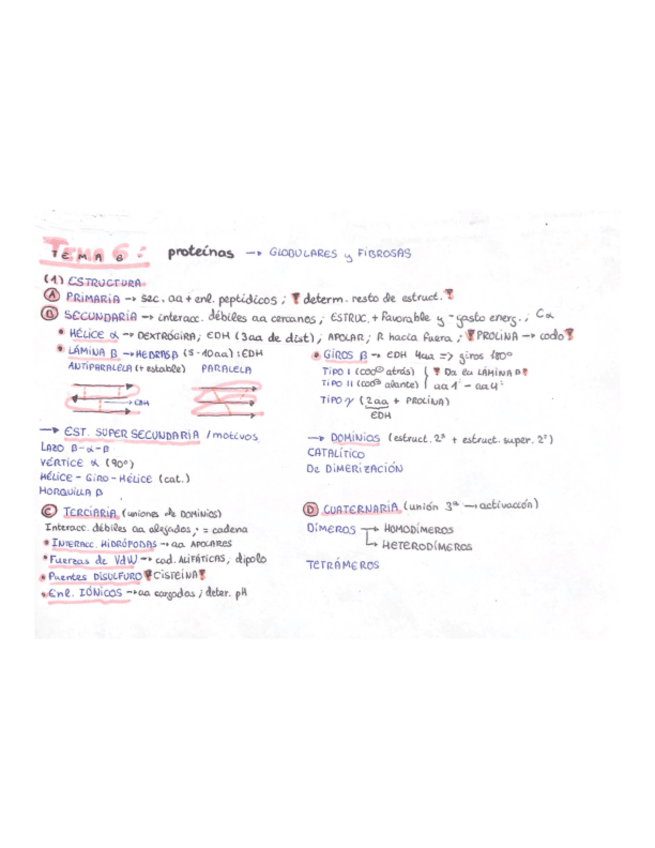 TEMA 6: proteínas → GLOBULARES y FIBROSAS
(1) ESTRUCTURA
Ⓐ PRIMARIA → sec. aa + enl. peptídicos ; ❗ determ. resto de estruct. ❗
Ⓑ SECUNDARIA → interacc. débiles aa cercanos ; ESTRUC. + favorable y - gasto energ. ; Cα
• HÉLICE α → DEXTRÓGIRA ; EDH (3aa de dist) ; APOLAR ; R hacia fuera ; ❗PROLINA → codo❗
• LÁMINA β → HEBRAS β (5-10aa) : EDH
ANTIPARALELA (+ estable) PARALELA
EDH
• GIROS β → EDH 4aa => giros 180º
TIPO I (COO⊖ atrás)
TIPO II (COO⊖ alante)
❗ De la LÁMINA β❗
aa1 - aa4
TIPO γ (2aa + PROLINA)
EDH
→ EST. SUPER SECUNDARIA / motivos
LAZO β-α-β
VÉRTICE α (90º)
HÉLICE - GIRO - HÉLICE (cat.)
HORQUILLA β
→ DOMINIOS (estruct. 2ª + estruct. super. 2ª)
CATALÍTICO
De DIMERIZACIÓN
Ⓒ TERCIARIA (uniones de DOMINIOS)
Interacc. débiles aa alejados ; = cadena
• INTERACC. HIDRÓFOBAS → aa APOLARES
• Fuerzas de VdW → cad. ALIFÁTICAS ; dipolo
• Puentes DISULFURO ❗CISTEINA❗
• Enl. IÓNICOS → aa cargados ; deter. pH
Ⓓ CUATERNARIA (unión 3ª → activacción)
DÍMEROS → HOMODÍMEROS
→ HETERODÍMEROS
TETRÁMEROS